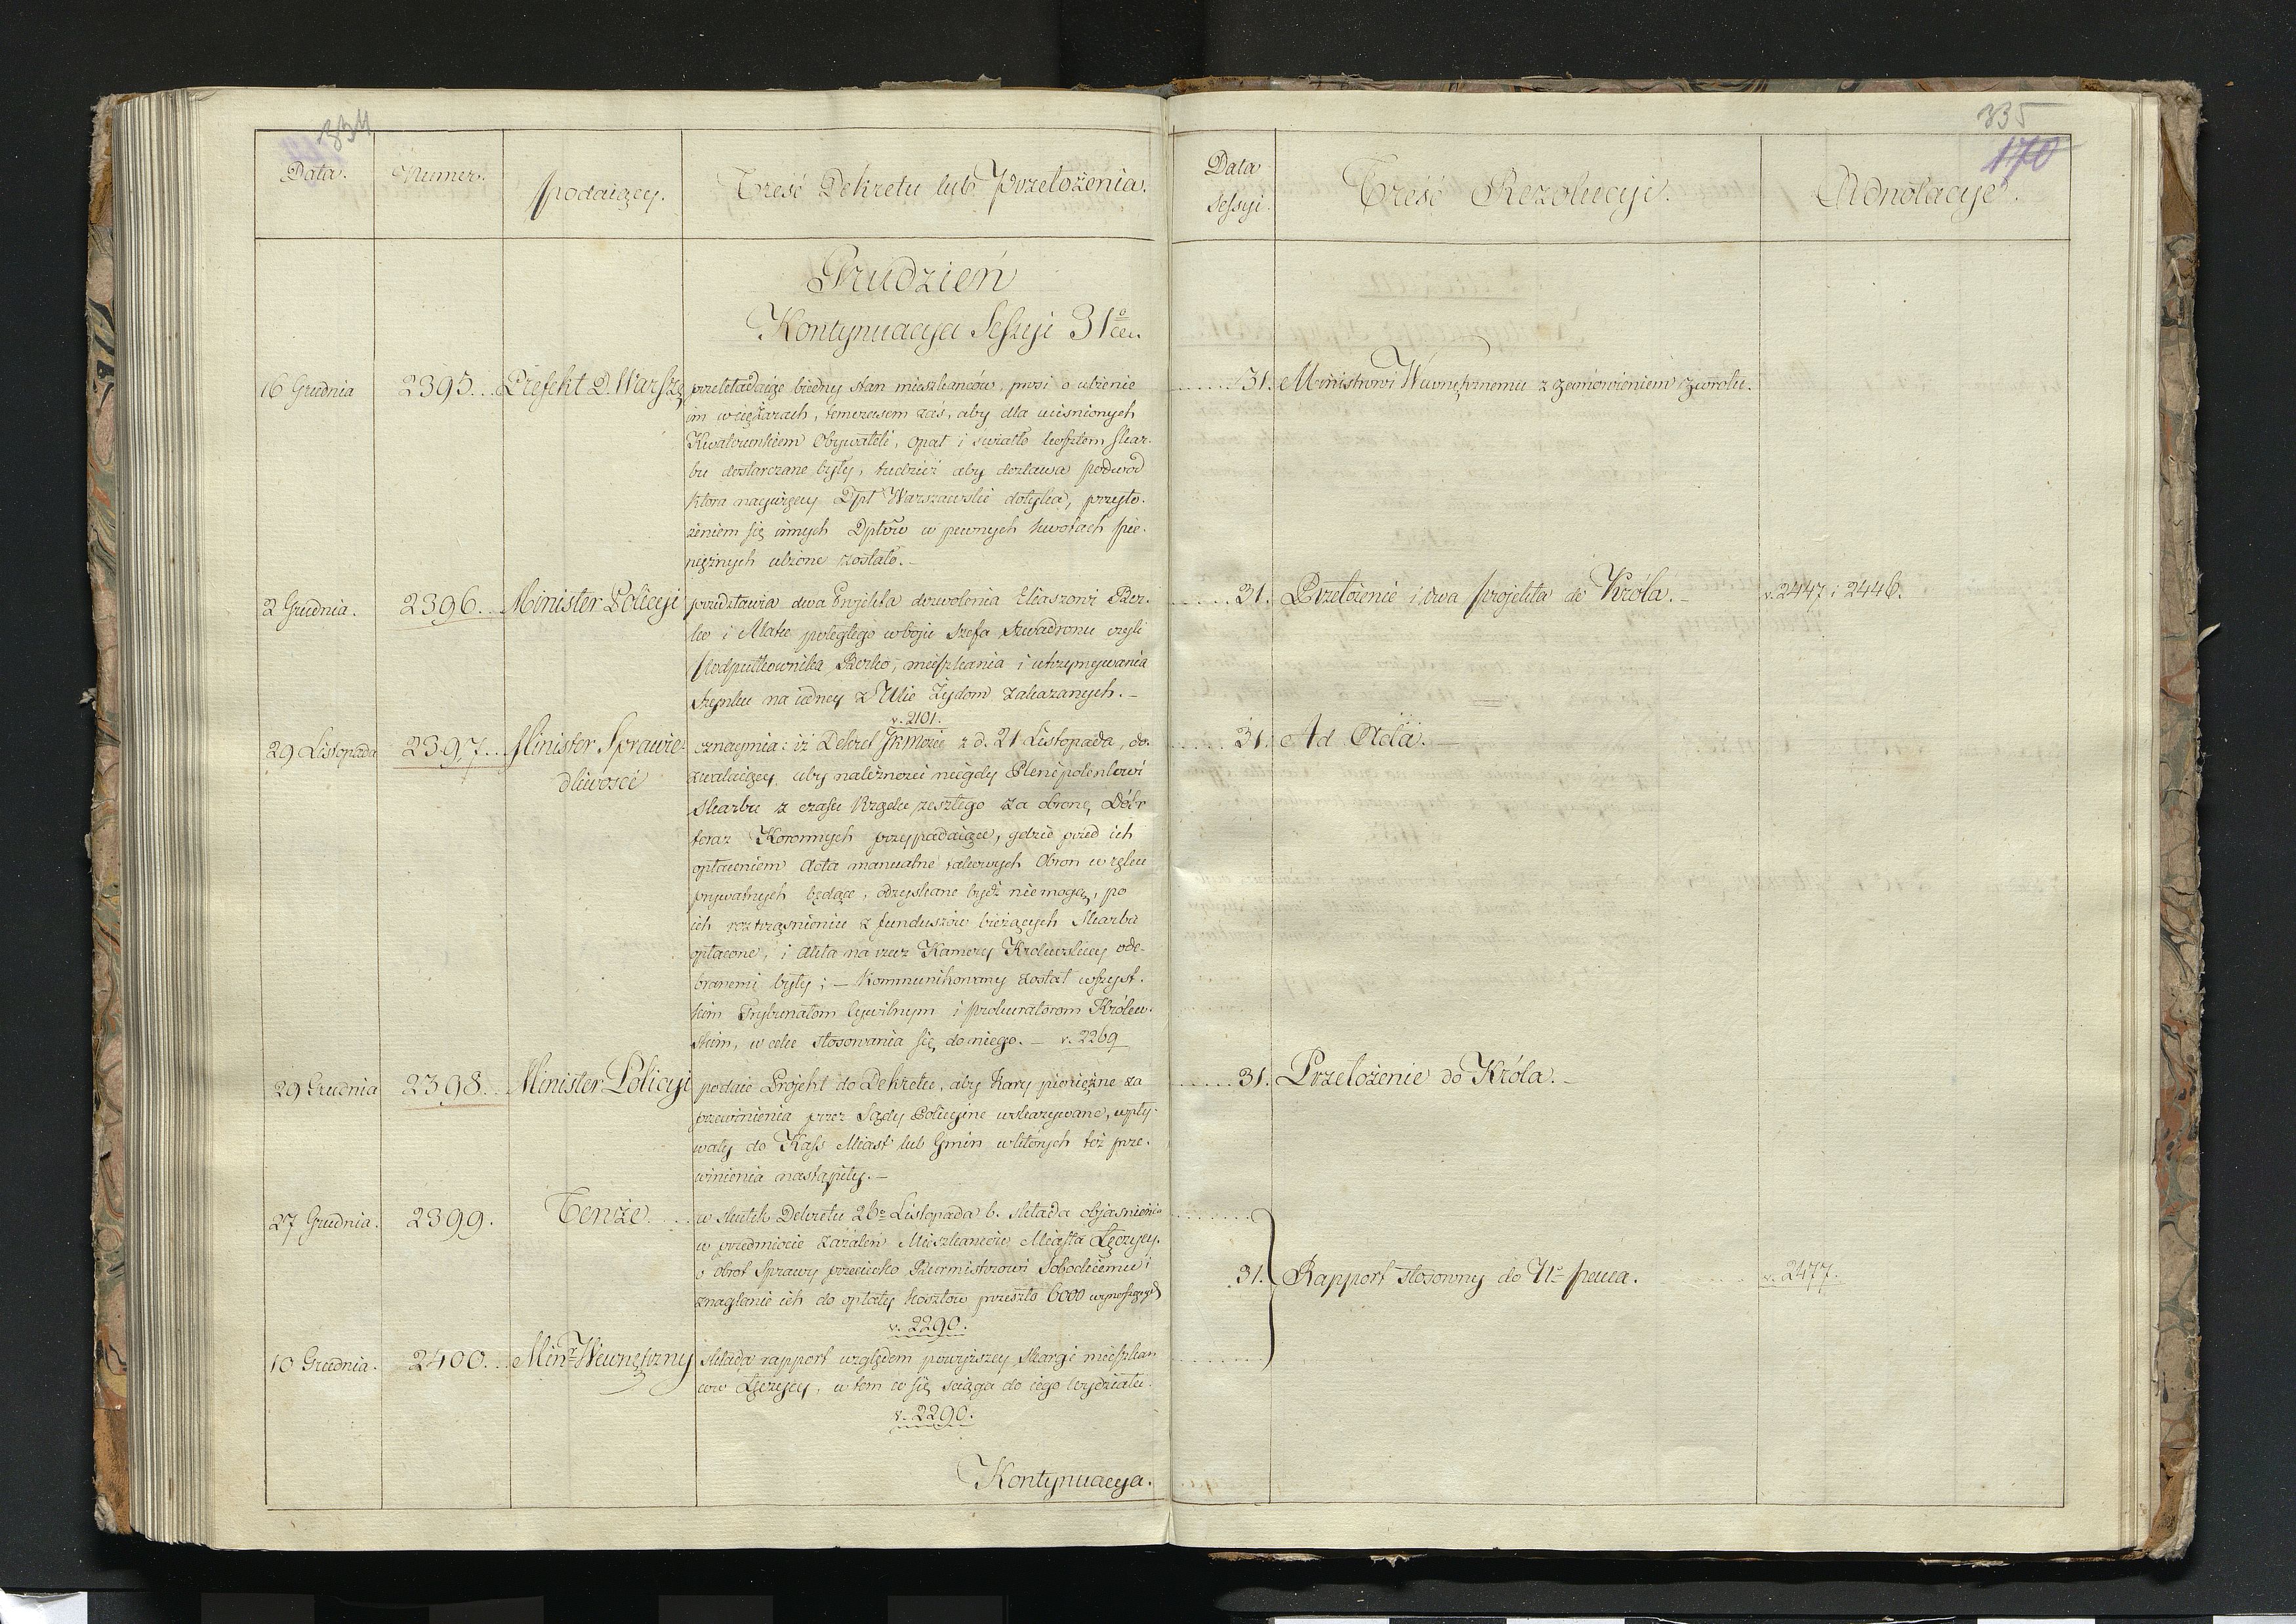 334
Data.
Numer.
podaiący.
Treść Dekretu lub Przełożenia.
Grudzień
Kontynuacya Sessyi 31º cea.
16 Grudnia
2395...
Prefekt D. Warszg
przekładaiąc biedny stan mieszkańców, prosi o ulżenie
im w ciężarach, tymczasem zaś, aby dla uciśnionych
Kwaterunkiem Obywateli, opał i światło kosztem skar-
bu dostarczane były, tudzież aby dostawa podwod
ktora naywięcey Dpt Warszawski dotyka, przyło-
żeniem się innych Dptów w pewnych kwotach pie-
niężnych ulżone zostało.-
2 Grudnia.
2396.
Minister Policyi
przedstawia dwa Projekta dozwolenia Eliaszowi Ber-
ko i Matce poległego w boju Szefa Szwadronu czyli
Podpułkownika Berko, mieszkania i utrzymywania
Szynku na iedney z Ulic Żydom zakazanych.-
v. 2101.
29 Listopada
2397..
Minister Sprawie-
dliwości
oznaymia: iż Dekret JKMości z d. 21 Listopada, do-
zwalaiący, aby należności niegdy Plenipotentowi
Skarbu z czasu Rządu zeszłego za obronę Dóbr
teraz Koronnych przypadaiące, gdzie przed ich
opłaceniem Acta manualne takowych Obron w ręku
prywatnych będące, odzyskane bydź nie mogą, po
ich roztrząśnieniu z funduszów bieżących Skarbu
opłacone, i Akta na rzecz Kamery Krolewskiey ode-
branemi były; - Kommunikowany został wszyst-
kim Trybunałom Cywilnym i prokuratorom Królew-
skim, w celu stosowania się do niego. - v. 2269
29 Grudnia
2398..
Minister Policyi
podaie Projekt do Dekretu, aby Kary pieniężne za
przewinienia przez Sądy Policyine wskazywane, wpły-
wały do Kass Miast lub Gmin w których też prze-
winienia nastąpiły.-
27 Grudnia.
2399.
Tenże.
w skutek Dekretu 26º Listopada b. składa obiaśnienie
w przedmiocie zażaleń Mieszkańców Miasta Łęczycy.
o obrot Sprawy przeciwko Burmistrzowi Sobockiemu i
znaglanie ich do opłaty kosztow przeszło 6000 wynoszących
v. 2290.
10 Grudnia.
2400...
Minr Wewnętrzny
składa rapport względem powyższey skargi mieszkań
cow Łęczycy, w tem co się ściąga do iego wydziału.
v. 2290.
Kontynuacya.
335
170
Data
Sessyi.
Treść Rezolucyi.
Adnotacye.
31. Ministrowi Wewnętrznemu z zamówieniem zwrotu.
31. Przełożenie i dwa projekta do Króla.- v. 2447. i 2446.
31. Ad Acta.-
31. Przełożenie do Króla.-
31. Rapport stosowny do Nº Pana. v. 2477.